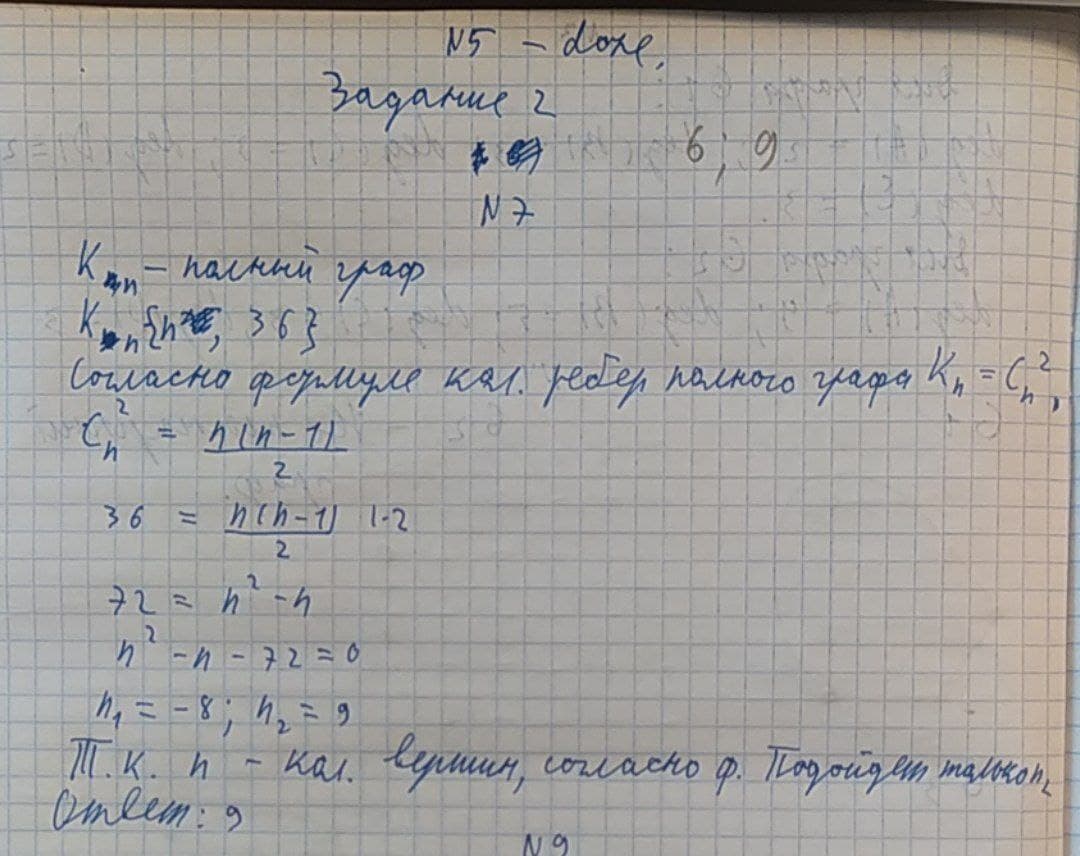 N5 – done.
Задание 2
6; 9
N7
Kₙ – полный граф
Kₙ{n, 36}
Согласно формуле кол. ребер полного графа Kₙ = Cₙ²,
Cₙ² = n(n-1)/2
36 = n(n-1)/2 |·2
72 = n² - n
n² - n - 72 = 0
n₁ = -8; n₂ = 9
Т.к. n – кол. вершин, согласно ф. Подойдет только n₂
Ответ: 9
N9